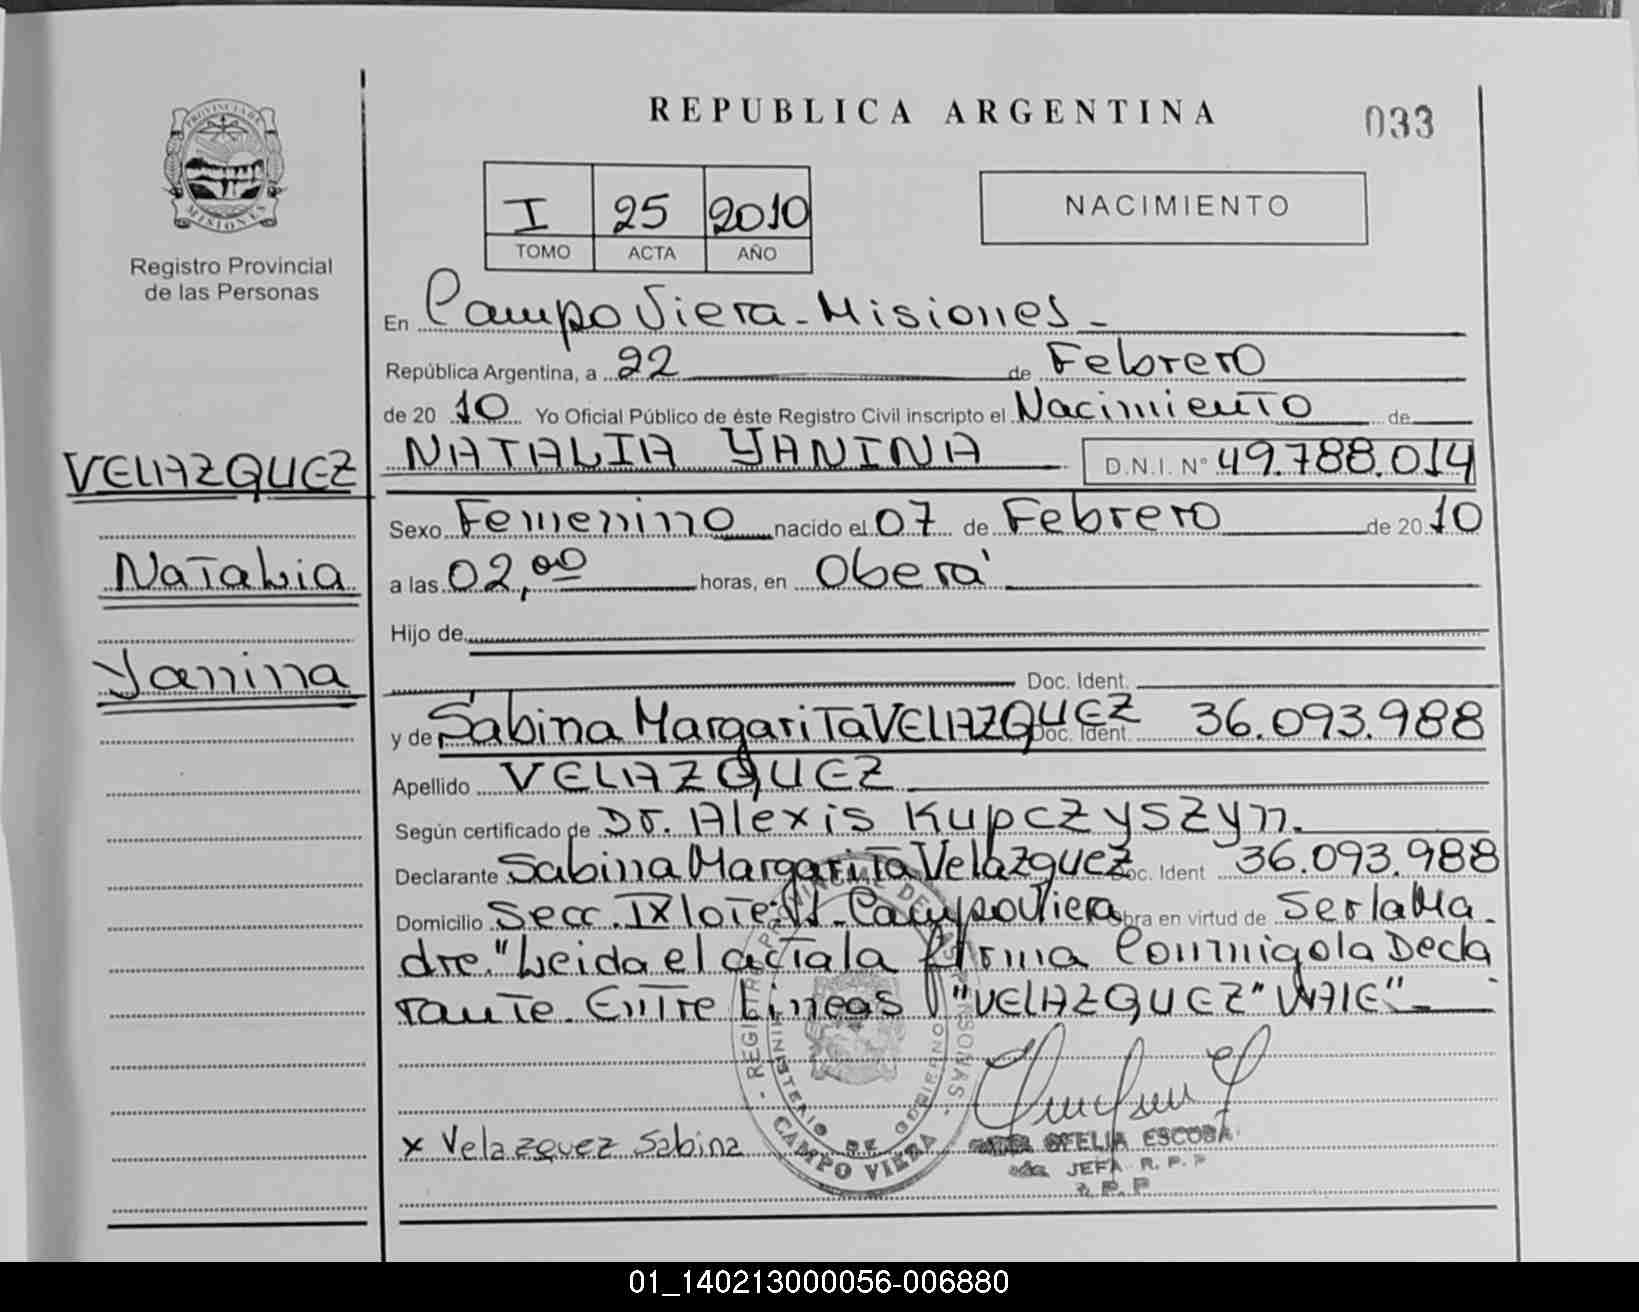 REPUBLICA ARGENTINA
033
PROVINCIA DE
MISIONES
Registro Provincial
de las Personas
I 25 2010
TOMO ACTA AÑO
NACIMIENTO
En Campo Viera - Misiones -
República Argentina, a 22 de Febrero
de 20 10 Yo Oficial Público de éste Registro Civil inscripto el Nacimiento de
NATALIA YANINA D.N.I. N° 49.788.014
VELAZQUEZ
Natalia
Yanina
Sexo Femenino nacido el 07 de Febrero de 20 10
a las 02,00 horas, en Oberá
Hijo de
Doc. Ident.
y de Sabina Margarita VELAZQUEZ Doc. Ident. 36.093.988
Apellido VELAZQUEZ
Según certificado de Dr. Alexis Kupczyszyn.
Declarante Sabina Margarita Velazquez Doc. Ident 36.093.988
Domicilio Secc. IX lote: Campo Viera Obra en virtud de Ser la Ma
dre." Leida el acta la firma Conmigo la Decla
rante. Entre Lineas "VELAZQUEZ" VALE" -
x Velazquez Sabina
REGISTRO PROVINCIAL DE LAS PERSONAS
MINISTERIO DE GOBIERNO
CAMPO VIERA
OFELIA ESCOBA
JEFA R. P. P
R. P. P
01_140213000056-006880